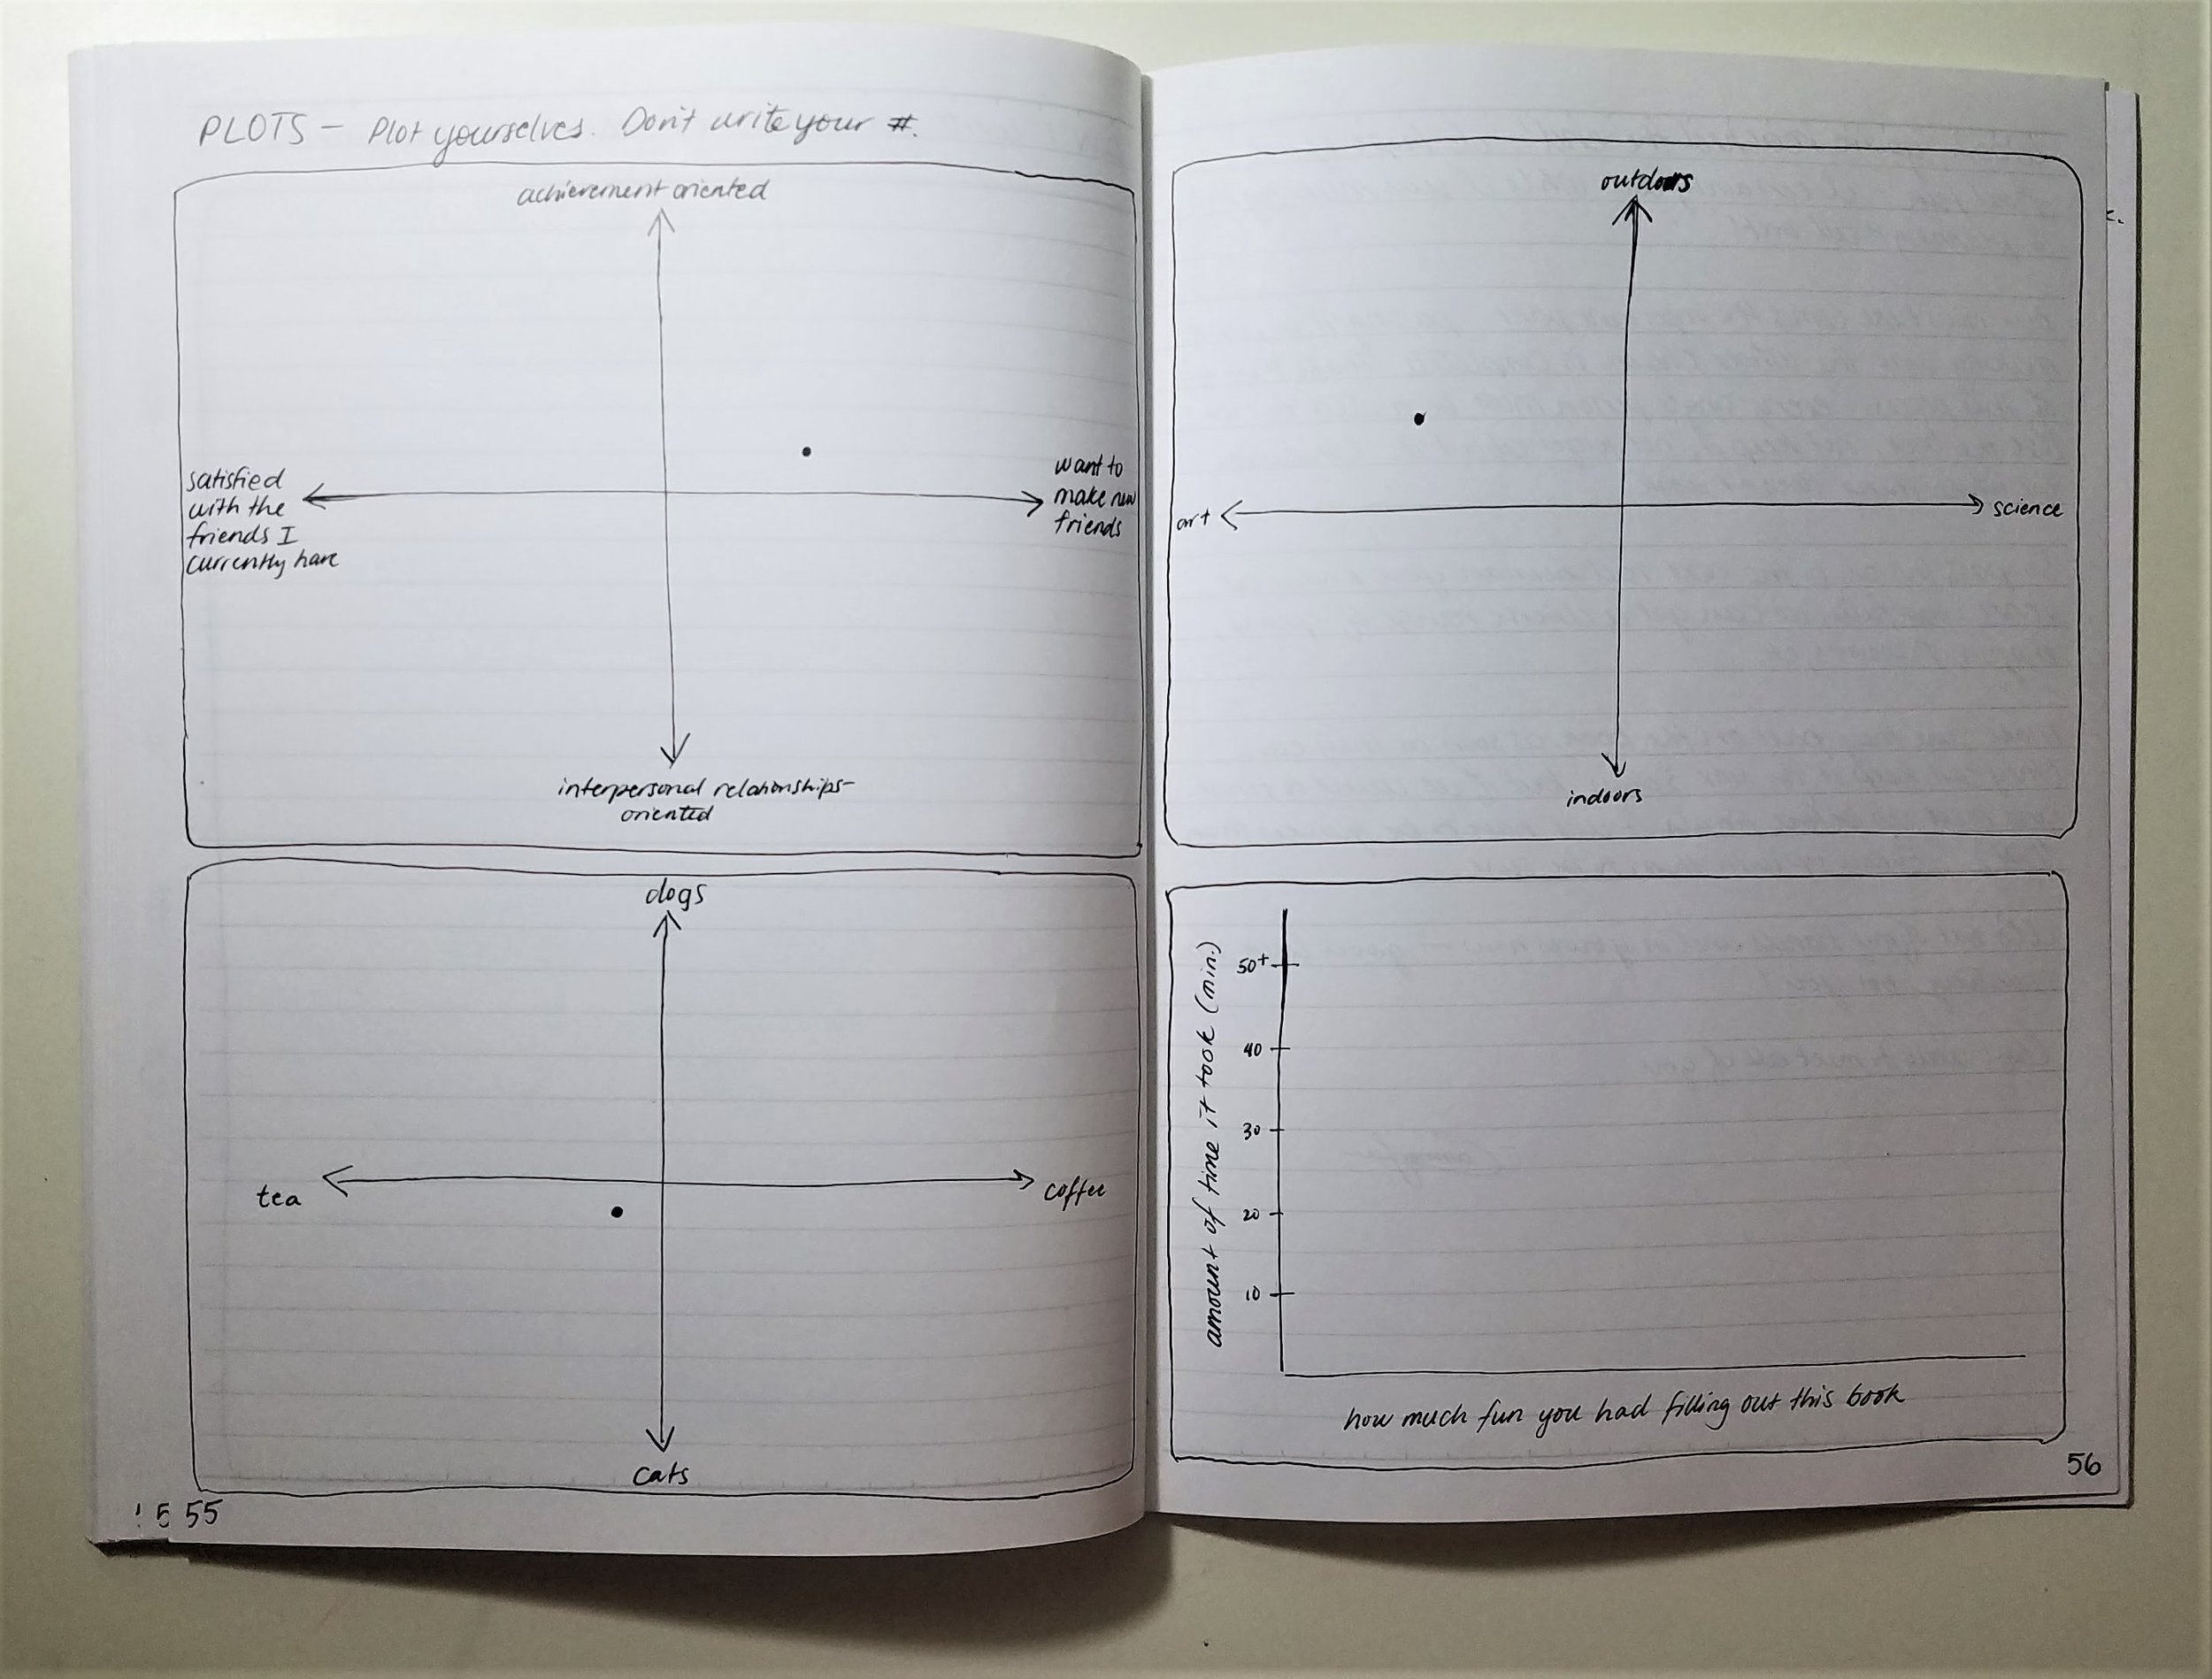 PLOTS - Plot yourselves. Don't write your #.
achievement oriented
satisfied
with the
friends I
currently have
want to
make new
friends
interpersonal relationships-
oriented
dogs
tea
coffee
cats
55
outdoors
art
science
indoors
amount of time it took (min.)
50+
40
30
20
10
how much fun you had filling out this book
56